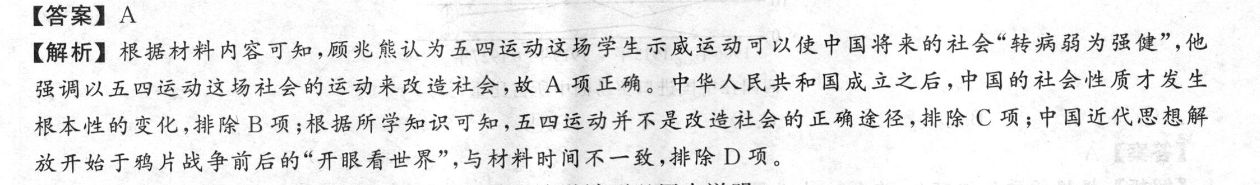 【答案】A
【解析】根据材料内容可知,顾兆熊认为五四运动这场学生示威运动可以使中国将来的社会“转病弱为强健”,他
强调以五四运动这场社会的运动来改造社会,故 A 项正确。中华人民共和国成立之后,中国的社会性质才发生
根本性的变化,排除 B 项;根据所学知识可知,五四运动并不是改造社会的正确途径,排除 C 项;中国近代思想解
放开始于鸦片战争前后的“开眼看世界”,与材料时间不一致,排除 D 项。